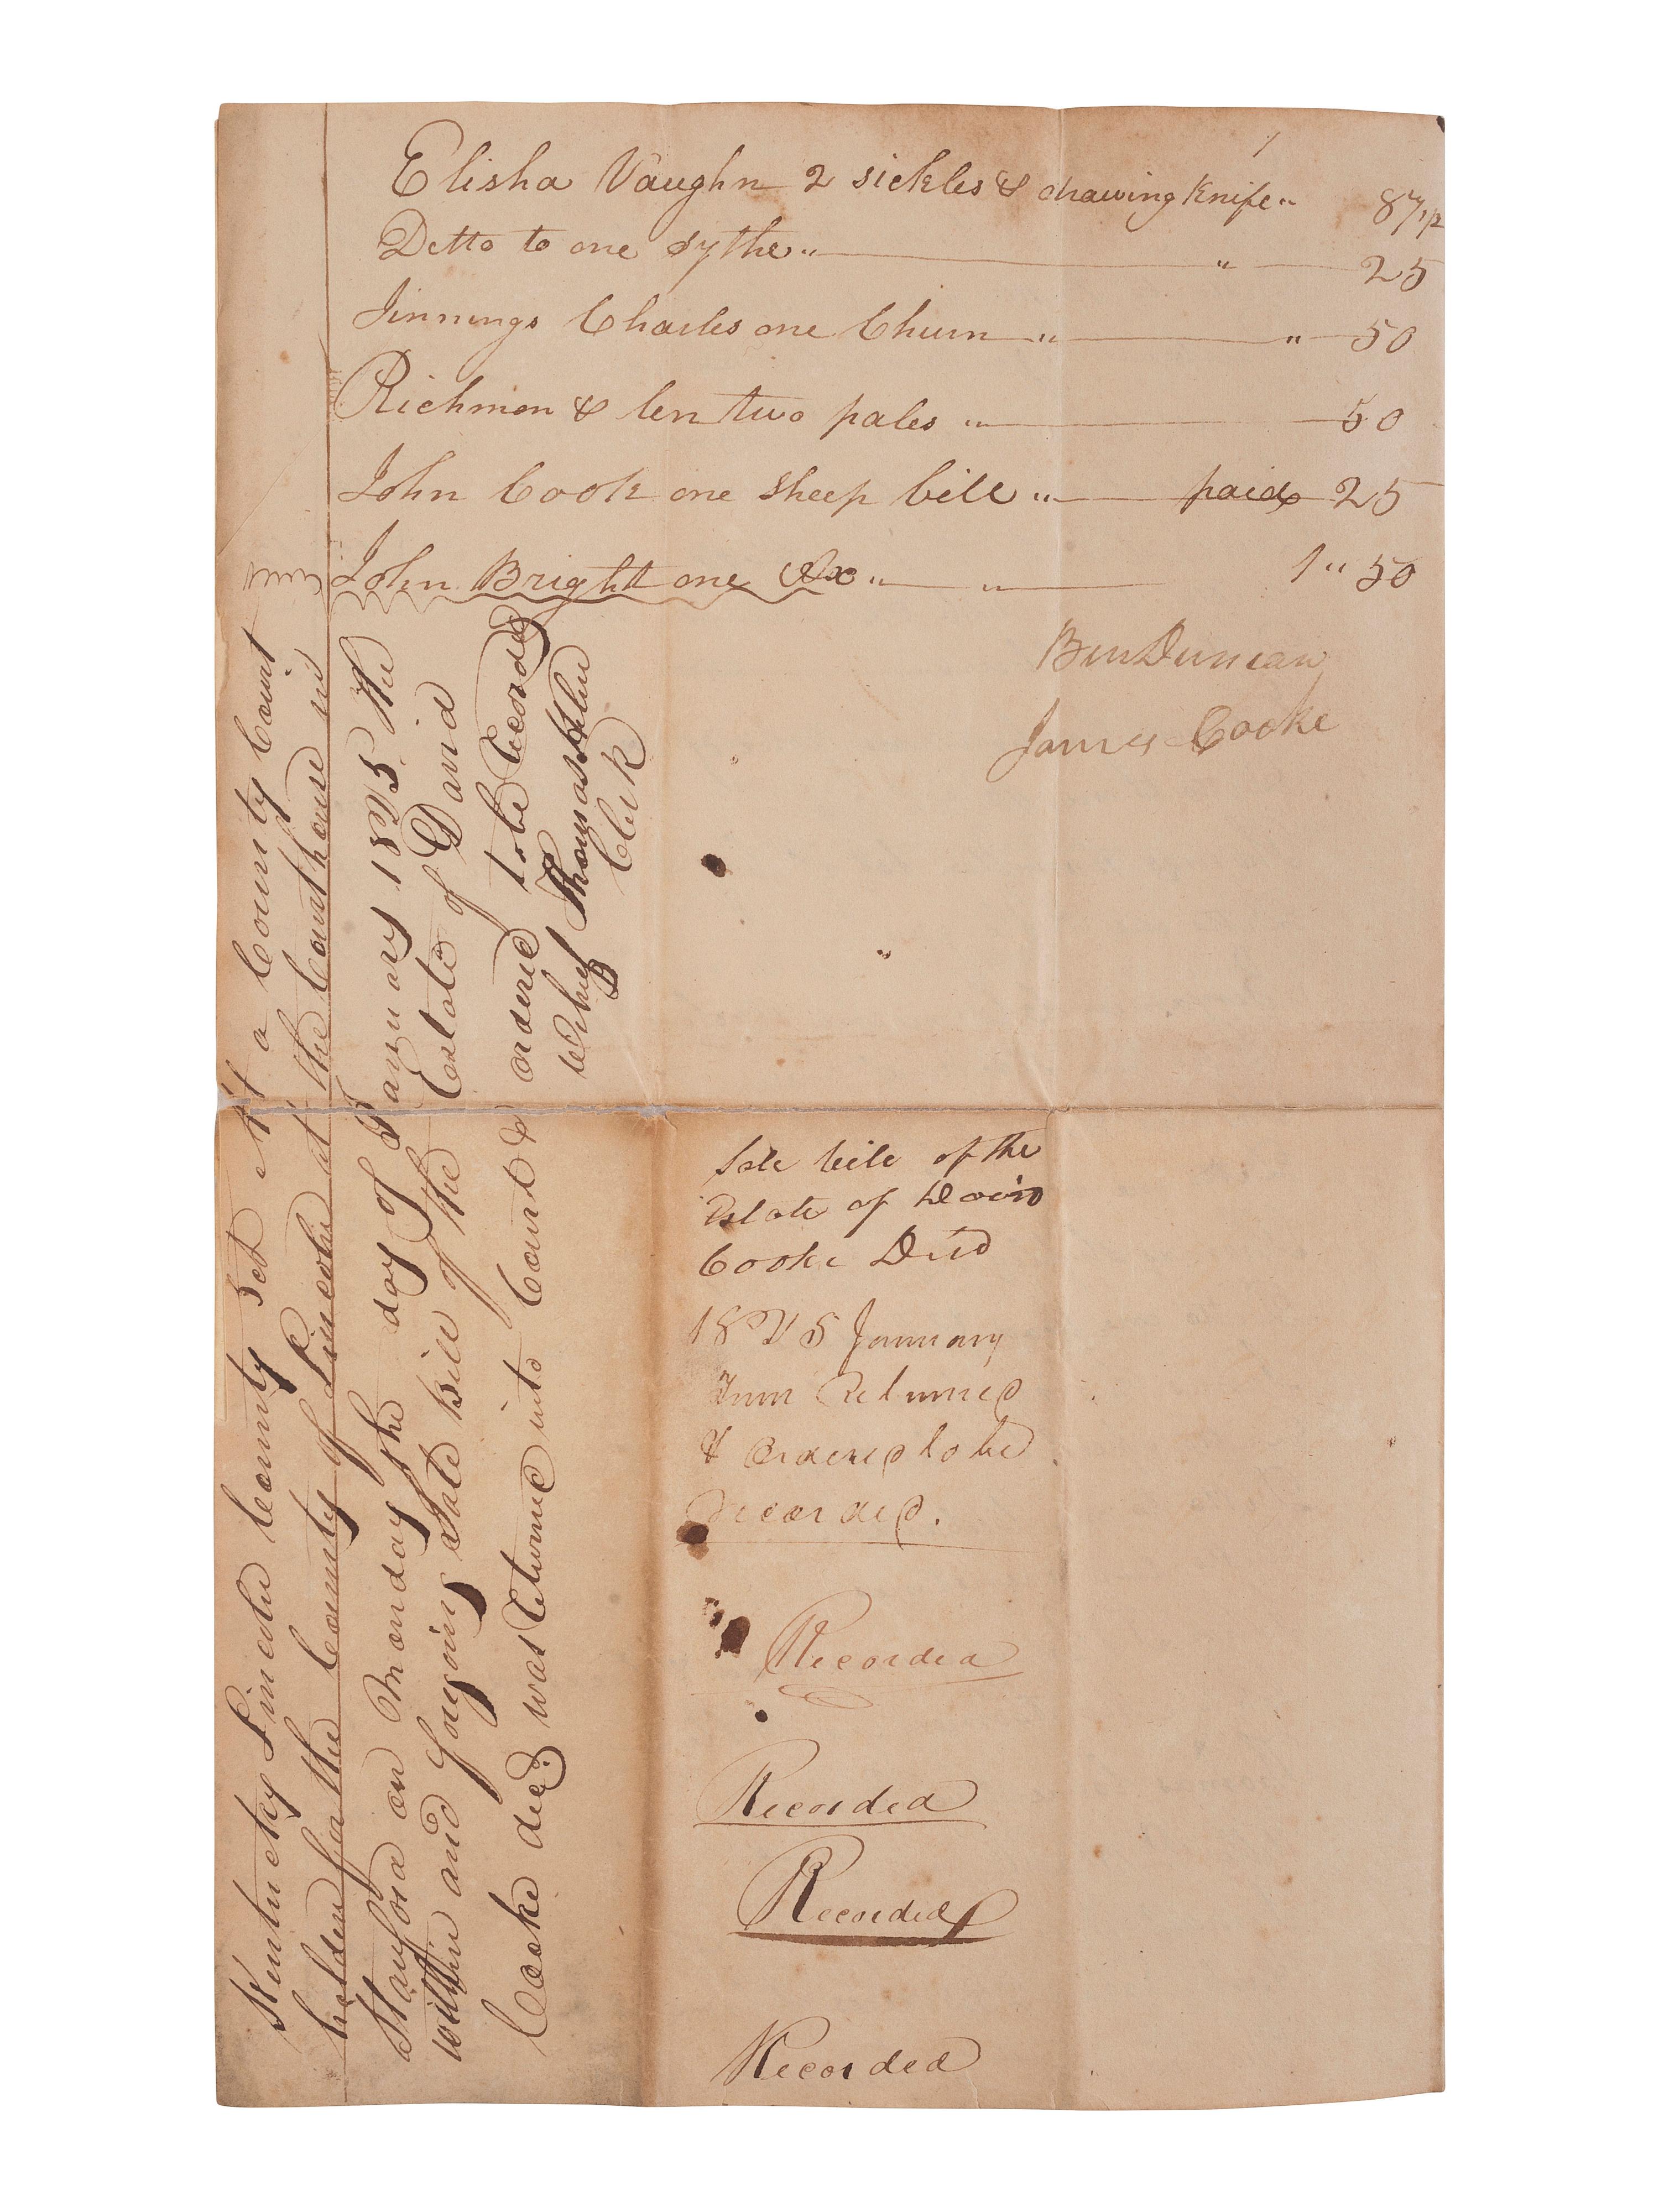 Elisha Vaughn 2 sickles & drawing Knife " 87 1/2
Ditto to one sythe " " 25
Jinnings Charles one Churn " " 50
Richmon & len two pales " 50
John Cook one sheep bell " paid 25
John Bright one Ax " " 1 " 50
Ben Duncan
James Cooke
Kentucky Lincoln County Sct At a County Court
holden for the County of Lincoln at the Courthouse in
Stanford on Monday the day of January 1825 the
within and forgoing Sale Bill of the Estate of David
Cooke decd. was returned into Court & ordered to be Recorded
Thomas Helm
Clerk
Sale bill of the
Estate of David
Cooke Decd
1825 January
Returned
& ordered to be
recorded.
Recorded
Recorded
Recorded
Recorded